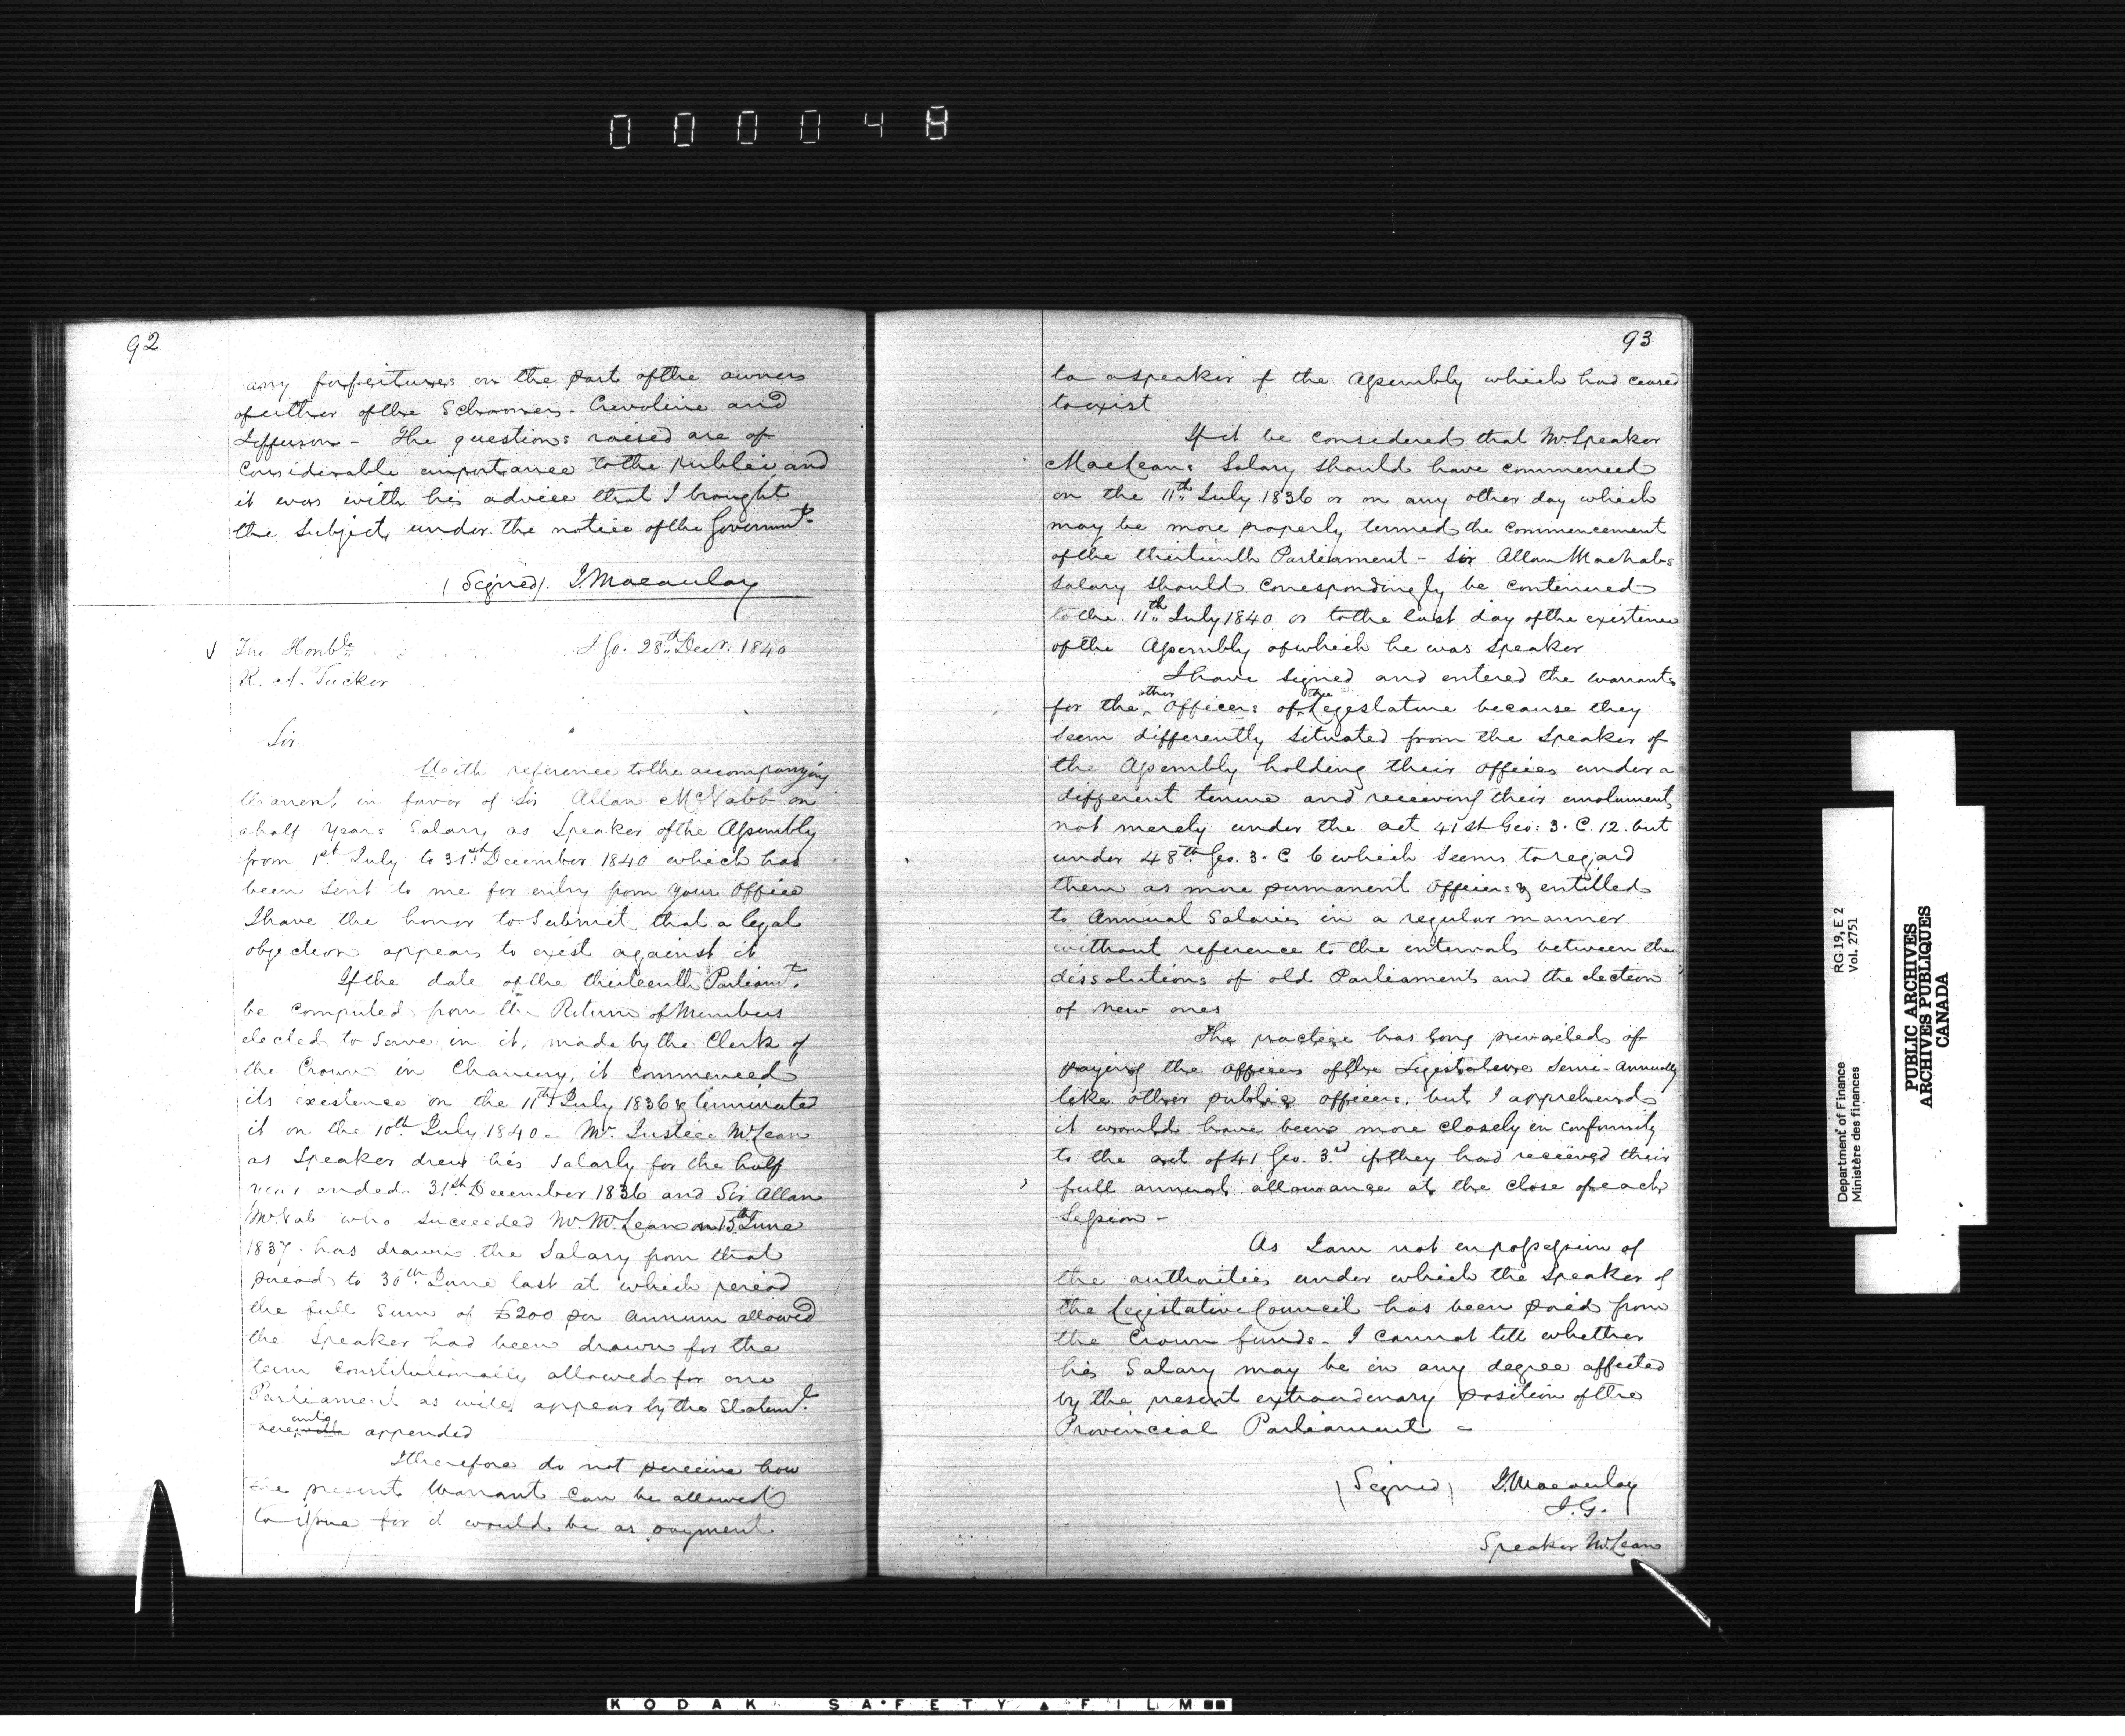 000048
92
any forfeitures on the part of the owners
of either of the Schooners - Caroline and
Jefferson - The questions raised are of
considerable importance to the public and
it was with his advice that I brought
the subject under the notice of the Governmt.
(Signed). J. Macaulay
The Honble. I. G. 28th Decr. 1840
R. A. Tucker
Sir
With reference to the accompanying
Warrant in favor of Sir Allan McNabb on
a half years Salary as Speaker of the Assembly
from 1st July to 31st December 1840 which has
been sent to me for entry from your Office
I have the honor to submit that a legal
objection appears to exist against it
If the date of the thirteenth Parliamt.
be computed from the Return of Members
elected to serve in it, made by the Clerk of
the Crown in Chancery, it commenced
its existence on the 11th July 1836 & terminated
it on the 10th July 1840 - Mr. Justice McLean
as Speaker drew his Salary for the half
year ended 31st December 1836 and Sir Allan
McNab who succeeded Mr. McLean on 15th June
1837 has drawn the Salary from that
period to 30th June last at which period
the full sum of £200 per annum allowed
the Speaker had been drawn for the
term constitutionally allowed for one
Parliament as will appear by the Statemt.
hereunto appended
I therefore do not perceive how
the present Warrant can be allowed
to issue for it would be as payment
93
to a speaker of the Assembly which had ceased
to exist
If it be considered that Mr. Speaker
MacLeans Salary should have commenced
on the 11th July 1836 or on any other day which
may be more properly termed the commencement
of the thirteenth Parliament - Sir Allan Macnabs
salary should correspondingly be continued
to the 11th July 1840 or to the last day of the existence
of the Assembly of which he was Speaker
I have signed and entered the warrants
for the other Officers of the Legislature because they
seem differently situated from the Speaker of
the Assembly holding their offices under a
different tenure and receiving their emoluments
not merely under the act 41st Geo: 3. C. 12. but
under 48th Geo. 3. C 6 which seems to regard
them as more permanent Officers & entitled
to Annual Salaries in a regular manner
without reference to the intervals between the
dissolutions of old Parliaments and the election
of new ones
The practice has long prevailed of
paying the officers of the Legislature Semi-Annually
like other public officers, but I apprehend
it would have been more closely in conformity
to the act of 41 Geo. 3rd if they had received their
full annual allowance at the close of each
Session -
As I am not in possession of
the authorities under which the Speaker of
the Legislative Council has been paid from
the Crown funds - I cannot tell whether
his Salary may be in any degree affected
by the present extraordinary position of the
Provincial Parliament -
(Signed) J. Macaulay
I. G.
Speaker McLean
Department of Finance RG 19, E 2
Ministère des finances Vol. 2751
PUBLIC ARCHIVES
ARCHIVES PUBLIQUES
CANADA
KODAK SAFETY FILM